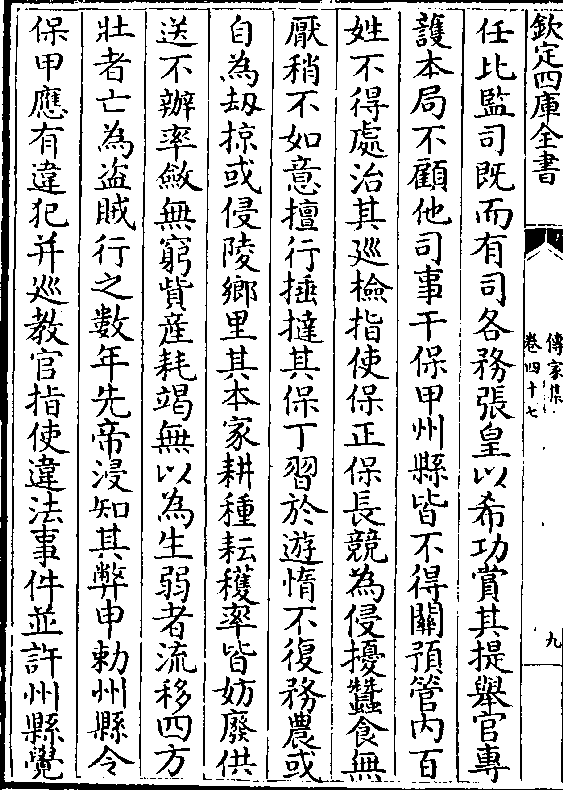 欽定四庫全書
傳家集
卷四十七
九
任比監司既而有司各務張皇以希功賞其提舉官專
䕶本局不顧他司事干保甲州縣皆不得關預管内百
姓不得處治其廵檢指使保正保長競為侵擾蠶食無
厭稍不如意擅行捶撻其保丁習於遊惰不復務農或
自為刼掠或侵陵鄉里其本家耕種耘穫率皆妨廢供
送不辦率斂無窮貲産耗竭無以為生弱者流移四方
壯者亡為盗賊行之數年先帝浸知其弊申勅州縣令
保甲應有違犯并廵教官指使違法事件並許州縣覺